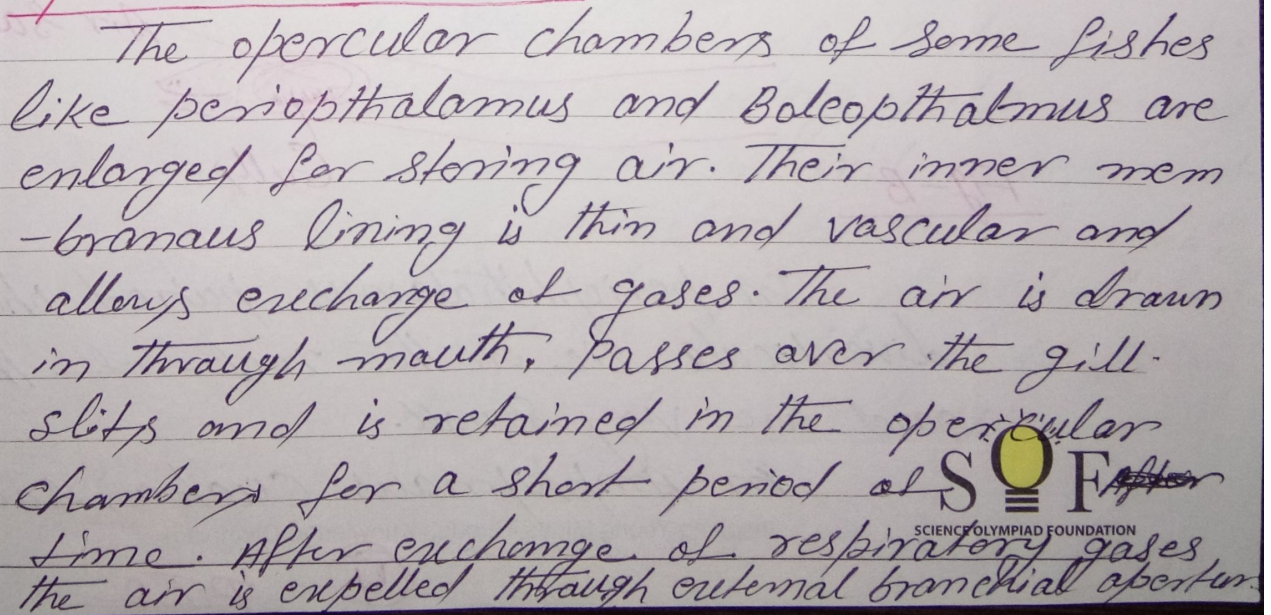 The opercular chambers of some fishes
like periopthalamus and Boleopthalmus are
enlarged for storing air. Their inner mem
-branous lining is thin and vascular and
allows exchange of gases. The air is drawn
in through mouth, passes over the gill
slits and is retained in the opercular
chambers for a short period of
SOF
SCIENCE OLYMPIAD FOUNDATION
time. After exchange of respiratory gases
the air is expelled through external branchial